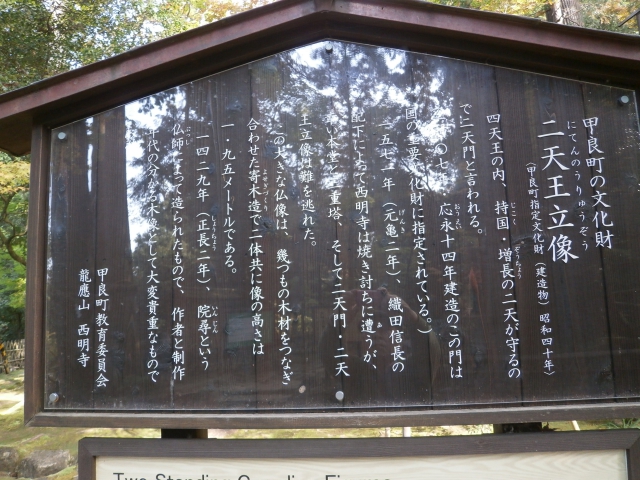 甲良町の文化財
にてんのうりゅうぞう
二天王立像
(甲良町指定文化財(建造物)昭和四十年)
四天王の内、持国・増長の二天が守るの
で二天門と言われる。
の七年 応永十四年建造のこの門は
国の重要文化財に指定されている。)
一五七一年(元亀二年)、織田信長の
配下によって西明寺は焼き討ちに遭うが、
本堂 三重塔、そして二天門・二天
王立像は難を逃れた。
この大きな仏像は、幾つもの木材をつなぎ
合わせた寄木造で二体共に像の高さは
一・九五メートルである。
一四二九年(正長二年)、院尋という
仏師によって造られたもので、作者と制作
年代の分かる として大変貴重なもので
甲良町教育委員会
龍應山 西明寺
Two Standing Guardian Figures